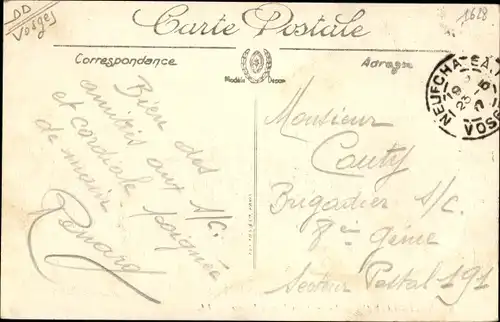 DD
Vosges
Carte Postale
1628
Correspondance
Modèle Déposé
Adresse
NEUFCHATEAU
VOSGES
Bien des
amitiés aux S/C.
et cordiale poignée
de main
Renard
Monsieur
Couty
Brigadier S/C.
8ème Génie
Secteur Postal 191